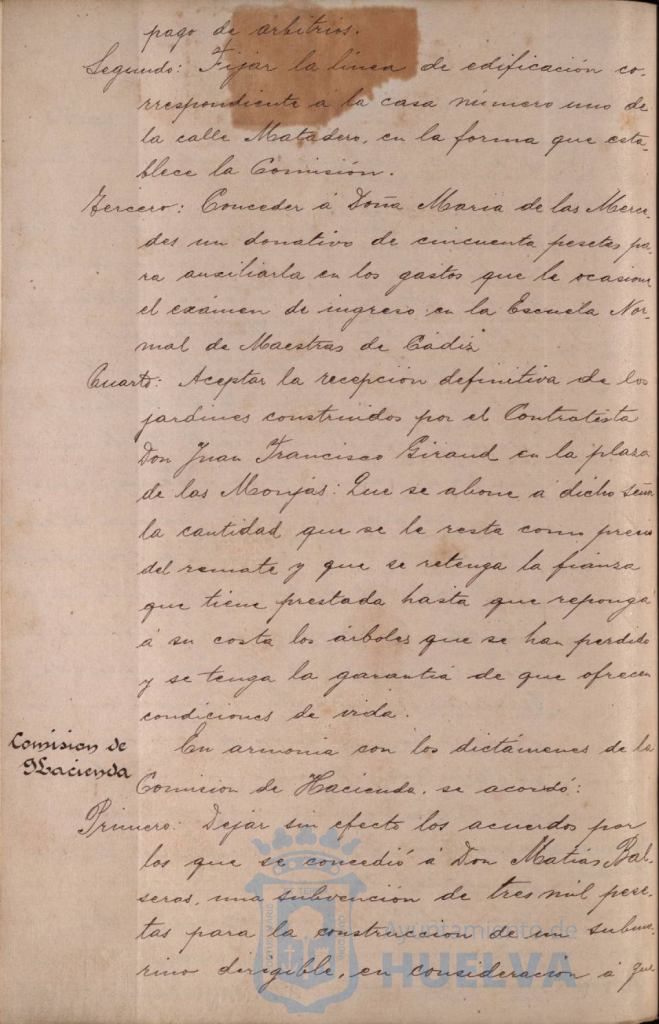 pago de arbitrios.
Segundo: Fijar la línea de edificación co-
rrespondiente á la casa número uno de
la calle Matadero, en la forma que esta-
blece la Comisión.
Tercero: Conceder á Doña Maria de las Merce-
des un donativo de cincuenta pesetas pa-
ra auxiliarla en los gastos que le ocasione
el exámen de ingreso en la Escuela Nor-
mal de Maestras de Cádiz
Cuarto: Aceptar la recepción definitiva de los
jardines construidos por el Contratista
Don Juan Francisco Giraud en la plaza
de las Monjas: Que se abone á dicho señor
la cantidad que se le resta como precio
del remate y que se retenga la fianza
que tiene prestada hasta que reponga
á su costa los árboles que se han perdido
y se tenga la garantía de que ofrecen
condiciones de vida.
Comision de
Hacienda
En armonia con los dictámenes de la
Comision de Hacienda, se acordó:
Primero: Dejar sin efecto los acuerdos por
los que se concedió á Don Matías Bal-
seras, una subvención de tres mil pese-
tas para la construccion de un subma-
rino dirigible, en consideración á que
Ayuntamiento de
HUELVA